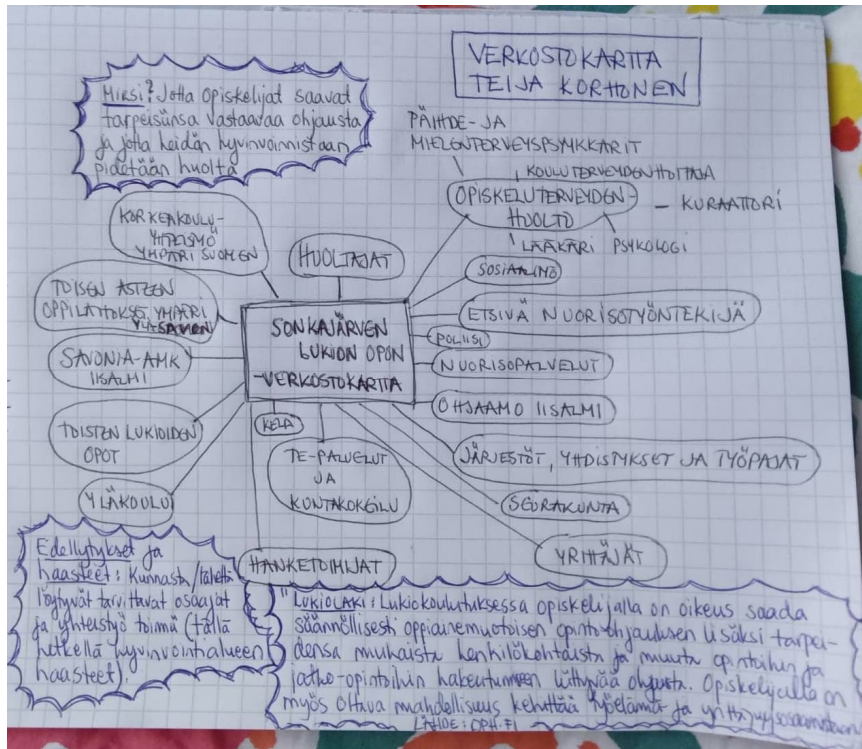 VERKOSTOKARTTA
TEIJA KORHONEN
MIKSI? Jotta opiskelijat saavat
tarpeisiinsa vastaavaa ohjausta
ja jotta heidän hyvinvoinnistaan
pidetään huolta
PÄIHDE- JA
MIELENTERVEYSPSYKKARIT
KOULUTERVEYDENHOITAJA
OPISKELUTERVEYDEN-
HUOLTO
- KURAATTORI
LÄÄKÄRI PSYKOLOGI
KORKEAKOULU-
YHTEISMÖ
YMPÄRI SUOMEN
HUOLTAJAT
SOSIAALITYÖ
TOISEN ASTEEN
OPPILAITOKSET YMPÄRI
YLÄ-SAVON
SONKAJÄRVEN
LUKION OPON
-VERKOSTOKARTTA
ETSIVÄ NUORISOTYÖNTEKIJÄ
POLIISI
SAVONIA-AMK
IISALMI
NUORISOPALVELUT
OHJAAMO IISALMI
TOISTEN LUKIOIDEN
OPOT
KELA
TE-PALVELUT
JA
KUNTAKOKEILU
JÄRJESTÖT, YHDISTYKSET JA TYÖPAJAT
YLÄKOULU
SEURAKUNTA
YRITTÄJÄT
HANKETOIMIJAT
Edellytykset ja
haasteet: Kunnasta/läheltä
löytyvät tarvittavat osaajat
ja yhteistyö toimii (tällä
hetkellä hyvinvointialueen
haasteet).
"LUKIOLAKI: Lukiokoulutuksessa opiskelijalla on oikeus saada
säännöllisesti oppiainemuotoisen opinto-ohjauksen lisäksi tarpei-
densa mukaista henkilökohtaista ja muuta opintoihin ja
jatko-opintoihin hakeutumiseen liittyvää ohjausta. Opiskelijalla on
myös oltava mahdollisuus kehittää työelämä- ja yrittäjyysosaamistaan
LÄHDE: OPH.FI